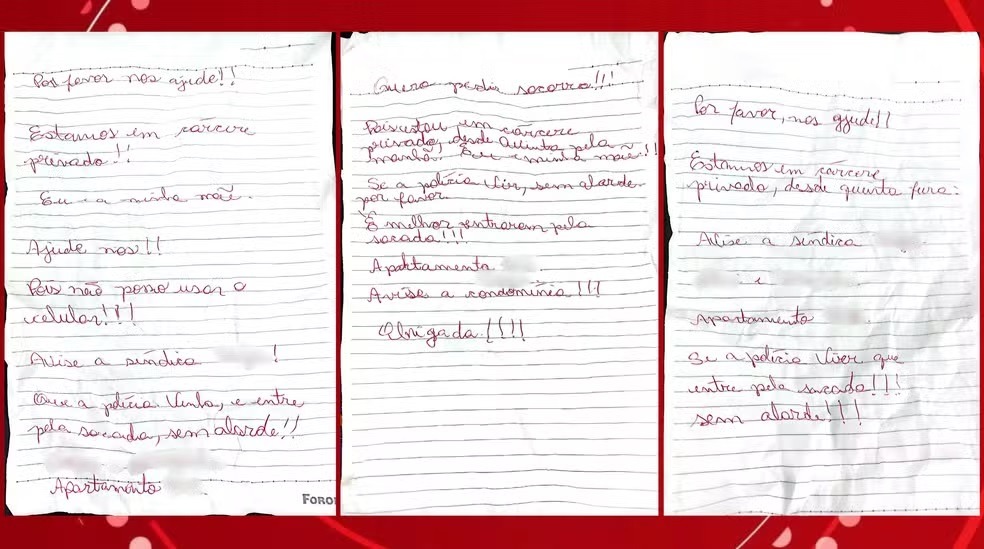 Por favor nos ajude!!
Estamos em cárcere
privado!!
Eu e a minha mãe.
Ajude nos!!
Pois não posso usar o
celular!!!
Avise a síndica !
Que a polícia Venha, e entre
pela sacada, sem alarde!!
Apartamento
FORO
Quero pedir socorro!!!
Pois estou em cárcere
privado, desde Quinta pela
manhã. Eu e minha mãe!!
Se a polícia Vir, sem alarde
por favor.
É melhor entrarem pela
sacada!!!
Apartamento
Avise a condomínia!!!
Obrigada!!!!
Por favor, nos ajude!!
Estamos em cárcere
privado, desde quinta fura:
Avise a síndica
e
Apartamento
Se a polícia Vier que
entre pela sacada!!!
sem alarde!!!